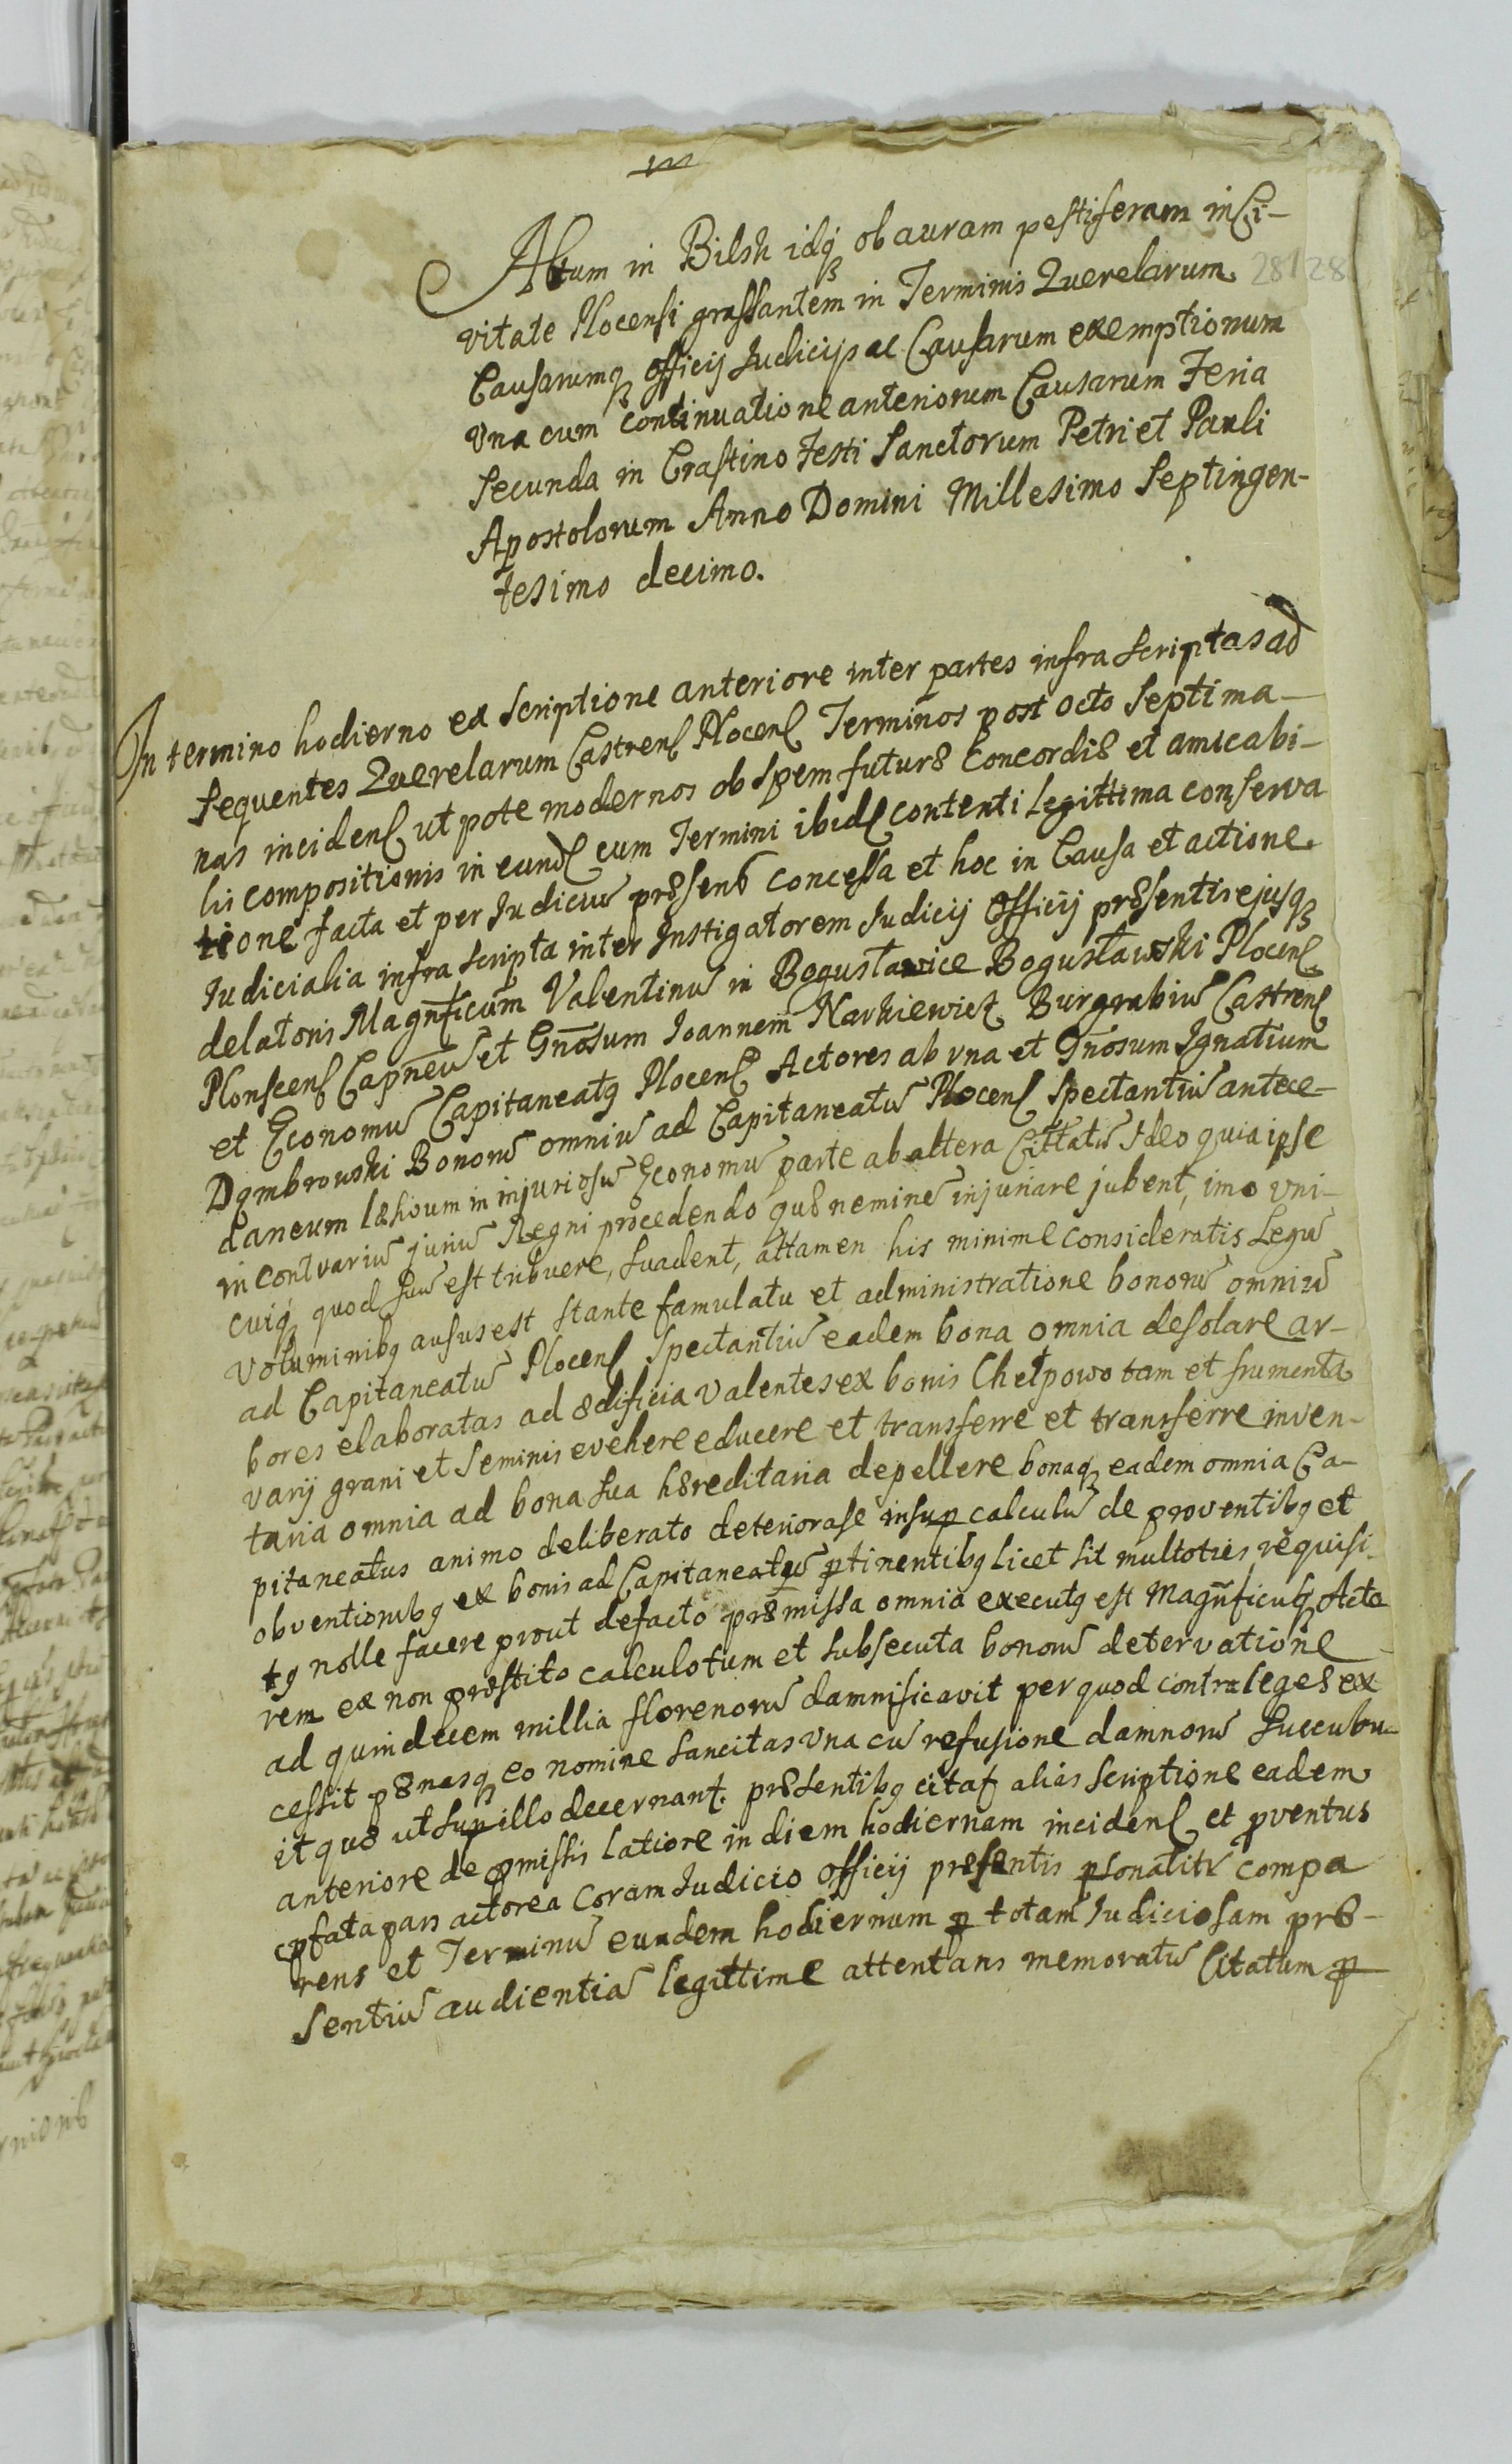 m
Actum in Bilsk idq ob auram pestiferam in Ci-
vitate Plocensi grassantem in Terminis Querelarum
281 28
Causarumq officij Judicijs ac Causarum exemptionum
Vna cum continuatione anteriorum Causarum Feria
Secunda in Crastino Festi Sanctorum Petri et Pauli
Apostolorum Anno Domini Millesimo Septingen-
tesimo decimo.
In termino hodierno ex Scriptione anteriore inter partes infra scriptas ad
sequentes Querelarum Castrens Plocens Terminos post octo septima-
nas incidens ut pote modernos ob spem futuræ Concordiæ et amicabi-
lis compositionis in eund cum Termini ibid contenti legittima conserva
tione facta et per Judiciu præsens concessa et hoc in Causa et actione
Judicialia infra scripta inter Instigatorem Judicij Officij præsentis ejusq
delatoris Magnficum Valentinu in Bogusławice Bogusławski Plocens
Plonscens Capneu et Gnosum Joannem Narkiewicz Burgrabiu Castrens
et Economu Capitaneatq Plocens Actores ab vna et Gnosum Ignatium
Dąmbrowski Bonoru omniu ad Capitaneatu Plocens Spectantiu antece-
daneum læhoum in injuriosu Economu parte ab altera Cittatu Ideo quia ipse
in contrariu juriu Regni procedendo quæ nemine injuriare jubent, imo vni-
cuiq quod suu est tribuere, suadent, attamen his minime consideratis Legu
Voluminibq ausus est stante famulatu et administratione bonoru omniu
ad Capitaneatu Plocens Spectantiu eadem bona omnia desolare ar-
bores elaboratas ad ædificia valentes ex bonis Chełpowo tam et frumenta
varij grani et seminis evehere educere et transferre et transferre inven-
taria omnia ad bona sua hæreditaria depellere bonaq eadem omnia Ca-
pitaneatus animo deliberato deteriorase insup calculu de proventibq et
obventionibq ex bonis ad Capitaneatqu ptinentibq licet sit multoties requisi
tq nolle facere prout defacto præmissa omnia executq est Magnficuq Acto
rem ex non præstito calculo tum et subsecuta bonoru detervatione
ad quindecem millia florenoru damnificavit per quod contra leges ex
cessit pænasq eo nomine sancitas vna cu refusione damnoru succubu-
it quæ ut sup illo decernant. præsentibq citat alias Scriptione eadem
anteriore de pmissis latiore in diem hodiernam incidens et pventus
cpfata pars actorea coram Judicio Officij præsentis psonalitr compa
rens et Terminu eundem hodiernum p totam Judiciosam præ-
sentiu audientia legittime attentans memoratu Citatum p